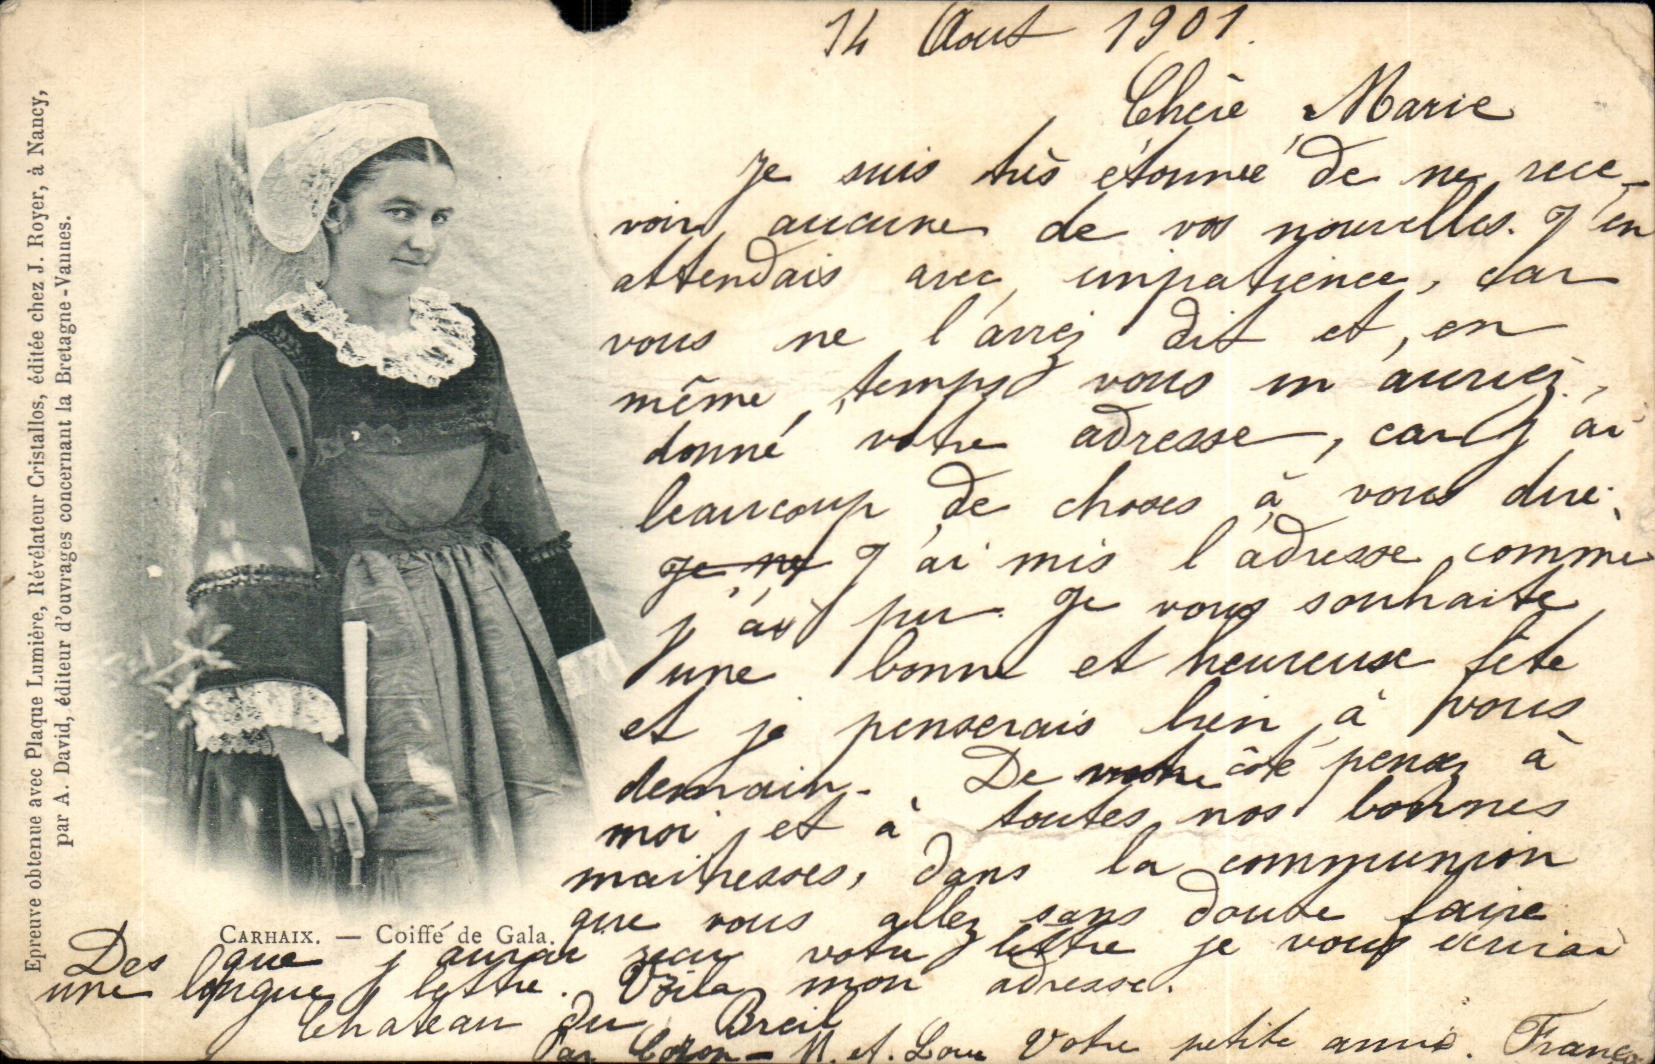 Epreuve obtenue avec Plaque Lumière, Révélateur Cristallos, éditée chez J. Royer, à Nancy,
par A. David, éditeur d'ouvrages concernant la Bretagne-Vannes.
14 Aout 1901.
Chère Marie
Je suis très étonnée de ne rece-
voir aucune de vos nouvelles. J'en
attendais avec impatience, car
vous ne l'avez dit et, en
même temps vous m'auriez
donné votre adresse, car j'ai
beaucoup de choses à vous dire.
je ne J'ai mis l'adresse comme
j'ai pu. Je vous souhaite
une bonne et heureuse fête
et je penserais bien à vous
demain. De votre côté pensez à
moi et à toutes nos bonnes
maitresses, dans la communion
que vous allez sans doute faire
CARHAIX. — Coiffé de Gala.
Des que j'aurai reçu votre lettre je vous écrirai
une longue lettre. Voila mon adresse.
Château du Breil
Par Cozon - M. et. Loire Votre petite amie. France